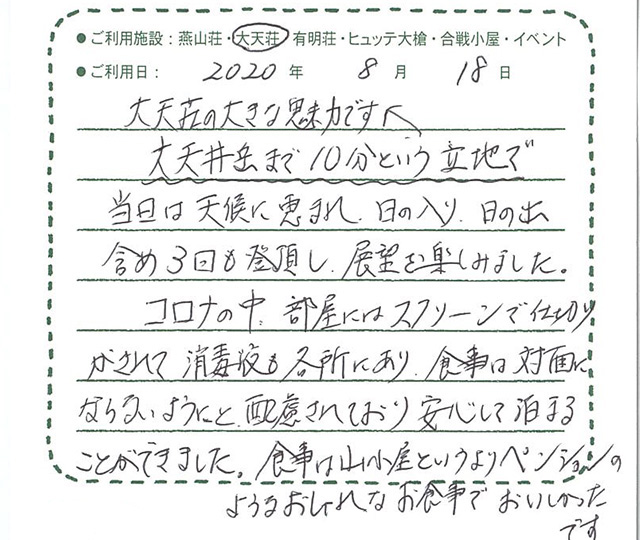 ● ご利用施設：燕山荘・大天荘・有明荘・ヒュッテ大槍・合戦小屋・イベント
● ご利用日： 2020 年 8 月 18 日
大天荘の大きな魅力です
大天井岳まで10分という立地で
当日は天候に恵まれ、日の入り、日の出
含め3回も登頂し、展望を楽しみました。
コロナの中、部屋にはスクリーンで仕切り
がされて消毒液も各所にあり、食事は対面に
ならないようにと、配慮されており安心して泊まる
ことができました。食事は山小屋というよりペンションの
ようなおしゃれなお食事でおいしかった
です